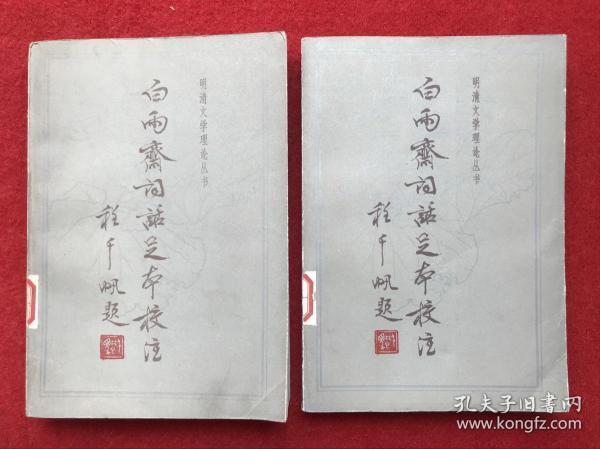 明清文学理论丛书
白雨齋词話足本校注
程千帆题
明清文学理论丛书
白雨齋词話足本校注
程千帆题
孔夫子旧书网
www.kongfz.com